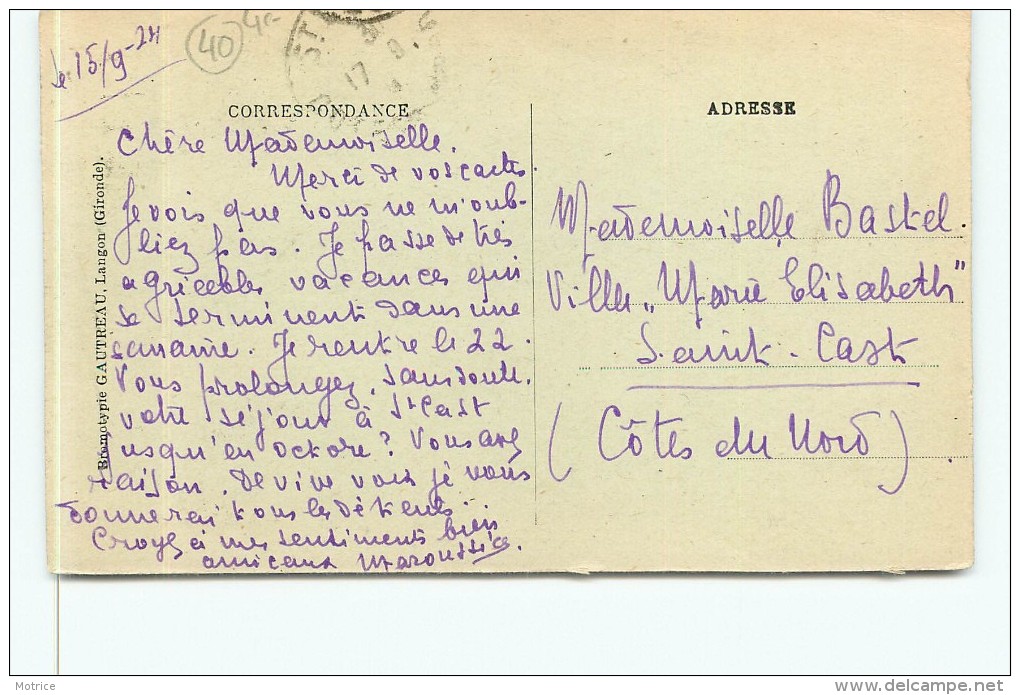 le 15/9-24
40
ST
17
CORRESPONDANCE
ADRESSE
Chère Mademoiselle.
Merci de vos cartes.
Je vois que vous ne m'oub-
liez pas. Je passe de très
agréables vacances qui
se terminent dans une
semaine. Je rentre le 22.
Vous prolongez, sans doute,
votre séjour à St Cast
jusqu'en octobre? Vous avez
raison. De vive voix je vous
donnerai tous les détails.
Croyez à mes sentiments bien
amicaux Maroussia.
Mademoiselle Bastel.
Villa "Marie Elisabeth"
Saint-Cast
(Côtes du Nord)
Bromotypie GAUTREAU, Langon (Gironde).
Motrice
www.delcampe.net